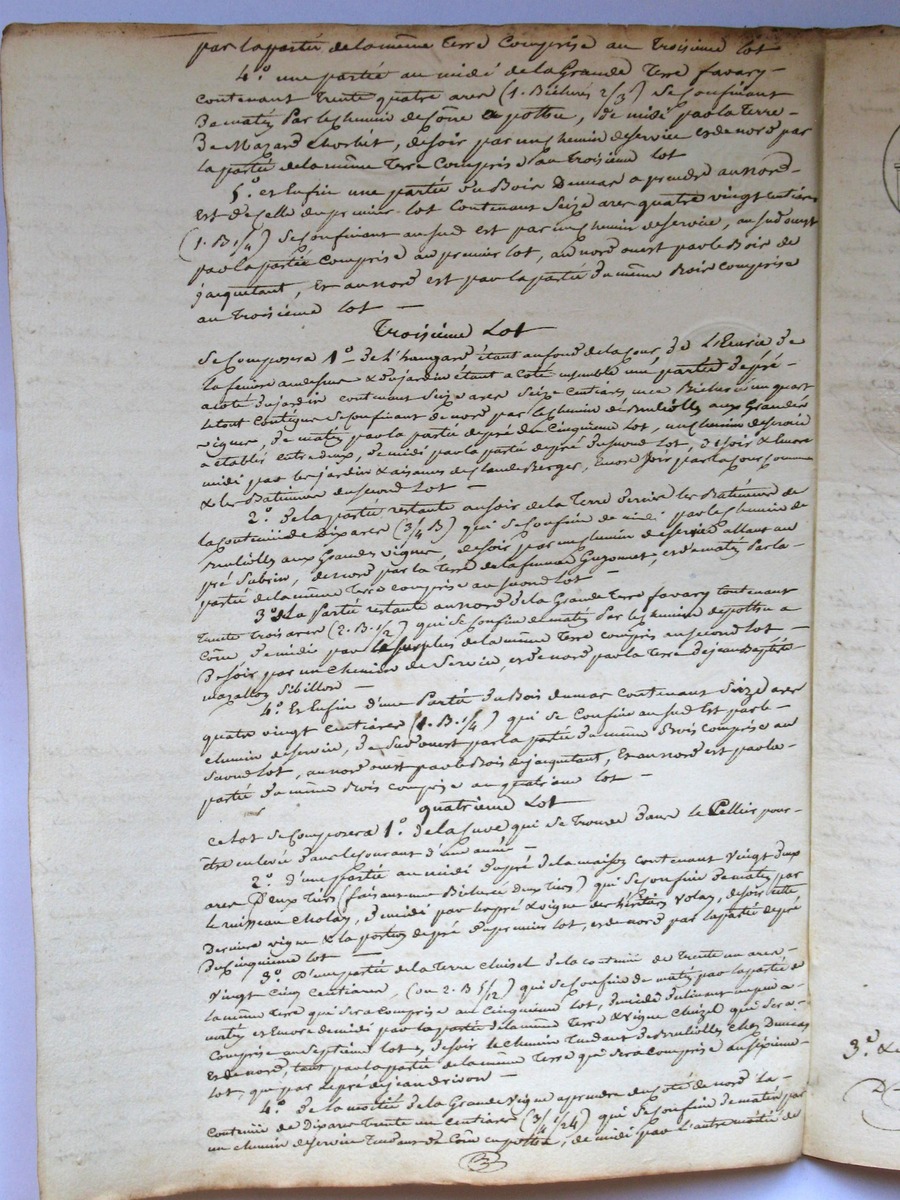 par la partie de la même Terre Comprise au Troisième lot
4.° une partie au midi de la Grande Terre favary
contenant trente quatre ares (1. Bichérée 2/3) Se Confinant
De matin par le Chemin de Cône a pothu, De midi par la Terre
De Mazard, De soir par un Chemin De service et de nord par
la partie de la même Terre Comprise au Troisième lot
5.° et Enfin une partie Du Bois Dumas a prendre au nord
Est De Celle Du premier lot Contenant Seize ares quatre vingt Centiares
(1. B 1/4) Se Confinant au Sud est par un Chemin De Service, au Sud ouest
par la partie Comprise au premier lot, au nord ouest par le Bois de
jacquetant, Et au nord est par la partie Du même Bois Comprise
au Troisième lot —
Troisième Lot
Se Composera 1.° De L'hangard étant au fond de la Cour, De L'Ecurie De
la feniere au dessus & Du jardin étant a Coté ensemble une partie De pré
a coté Du jardin contenant Seize ares Seize Centiares, une Bicherée un quart
le tout Contigue Se Confinant De nord par le Chemin de Brulliolles aux Grandes
vignes, De matin par la partie De pré Du Cinquieme lot, un Chemin De service
a établir entre deux, De midi par la partie De pré Du second lot, De soir & Encore
midi par les jardin & aisances de Claude Berger, Encore Soir par la Cour Commune
& les Batimens Du second Lot —
2.° De la partie restante au soir de la Terre Derriere les Batimens de
la Contenue de Dix ares (3/4 B) qui Se Confine de midi par le Chemin de
Brulliolles aux Grandes vignes, De soir par un Chemin De service allant au
pré Subrin, De nord par la Terre De la femme Guyonnet, et De matin par la
partie De la même Terre comprise au second Lot —
3.° De La Partie restante au nord De la Grande Terre favary Contenant
Trente Trois ares (2. B. 1/2) qui Se Confine De matin par le Chemin De pothu a
Cône De midi par le Surplus De la même Terre Compris au second Lot —
De Soir par un Chemin De Service, et De nord par la Terre De jean Baptiste
mazallon Sibillon —
4.° Et Enfin D'une Partie Du Bois Dumas Contenant Seize ares
quatre vingt Centiares (1. B. 1/4) qui Se Confine au Sud Est par le
Chemin De Service, De Sud ouest par la partie Du même Bois Comprise au
Second Lot, au nord ouest par le Bois De jacquetant, Et au nord est par la
partie Du même Bois comprise au quatrieme Lot —
quatrieme Lot
Ce Lot Se Composera 1.° De la Cuve qui Se Trouve Dans le Cellier pour
être enlevée Dans le Courant D'une année —
2.° D'une Partie au midi Du pré De la maison contenant vingt Deux
ares Deux Tiers (faisant une Bicherée Deux Tiers) qui Se Confine De matin par
le ruisseau Cholay, De midi par le pré & vigne des héritiers Volay, De soir cette
Derniere vigne & la portion De pré Du premier Lot, et De nord par la partie De pré
Du Cinquieme Lot —
3.° D'une partie De la Terre Cluzel De la contenue De Trente un ares
vingt Cinq Centiares, (ou 2. B 5/12) qui Se Confine De matin par la partie De
la même Terre qui Sera Comprise au Cinquieme Lot, De midi
matin et Encore De midi par la partie De la même Terre & vigne Cluzel qui Sera
Comprise au Septieme Lot, De soir le Chemin Tendant De Brulliolles Chez Dumas
Et De nord, tant par la partie De la même Terre qui Sera Comprise au Sixieme
Lot, que par le pré De jean Drivon —
4.° De la moitié De la Grande vigne a prendre Du Coté De nord De la
Contenue De Dix ares Trente un Centiares (3/4 1/24) qui Se Confine De matin par
un chemin De Service Tendant De Cône a pothu, De midi par l'autre moitié De
3.e